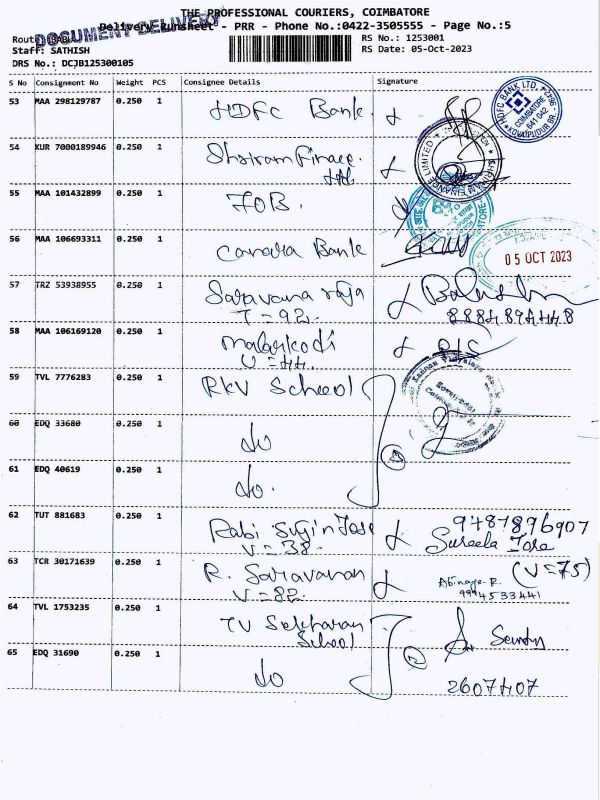 THE PROFESSIONAL COURIERS, COIMBATORE
DOCUMENT DELIVERY
Delivery Runsheet - PRR - Phone No.:0422-3505555 - Page No.:5
Staff: SATHISH
RS No.: 1253001
DRS No.: DCJB125300105
RS Date: 05-Oct-2023
S No Consignment No Weight PCS Consignee Details Signature
53 MAA 298129787 0.250 1 HDFC Bank
HDFC BANK LTD. COIMBATORE 641 042 KOVAIPUDUR BR.
54 KUR 7000189946 0.250 1 Shriram Finance Ltd.
55 MAA 101432899 0.250 1 IOB.
56 MAA 106693311 0.250 1 Canara Bank
05 OCT 2023
57 TRZ 53938955 0.250 1 Saravana raja
V=92.
58 MAA 106169120 0.250 1 Malarkodi
V=44.
59 TVL 7776283 0.250 1 RKV School
60 EDQ 33680 0.250 1 do
61 EDQ 40619 0.250 1 do.
3
62 TUT 881683 0.250 1 Rabi Sujin Jose 9787896907
V=38. Sureela Jose
63 TCR 30171639 0.250 1 R. Saravanan (V=75)
V=82. Abinaya. R.
9994533441
64 TVL 1753235 0.250 1 School
2
65 EDQ 31690 0.250 1 do
2607407